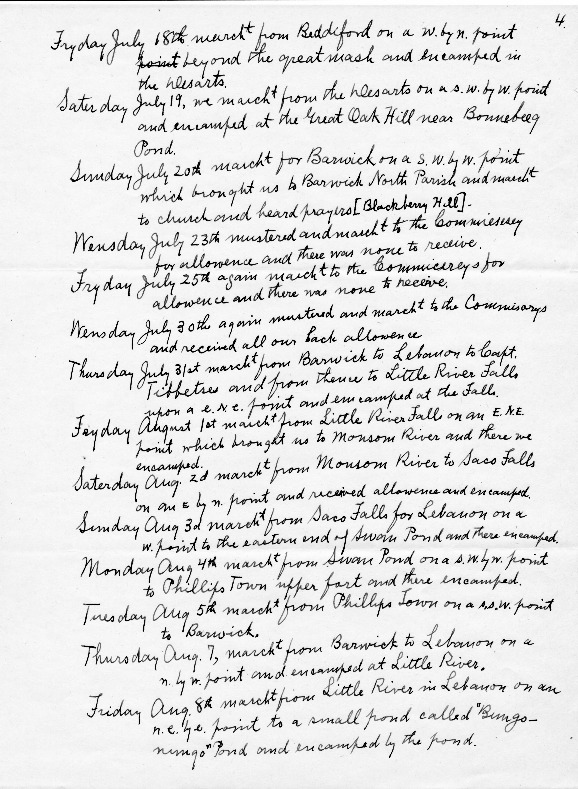 4.
Fryday July 18th marcht from Beddiford on a W. by n. point
point beyond the great mash and encamped in
the Desarts.
Saterday July 19, we marcht from the Desarts on a s.w. by w. point
and encamped at the Great Oak Hill near Bonnebeeg
Pond.
Sunday July 20th marcht for Barwick on a s. w. by w. point
which brought us to Barwick North Parish and marcht
to church and heard prayers [Blackberry Hill].
Wensday July 23th mustered and marcht to the Commiesesey
for allowence and there was none to receive.
Fryday July 25th again marcht to the Commicereys for
allowence and there was none to receive.
Wensday July 30th again mustered and marcht to the Commisarys
and received all our back allowence
Thursday July 31st marcht from Barwick to Lebanon to Capt.
Tibbetses and from thence to Little River Falls
upon a e. N. e. point and encamped at the Falls.
Fryday August 1st marcht from Little River Falls on an E. N.E.
point which brought us to Monsom River and there we
encamped.
Saterday Aug. 2d marcht from Monsom River to Saco Falls
on an E by n. point and received allowence and encamped.
Sunday Aug 3d marcht from Saco Falls for Lebanon on a
w. point to the eastern end of Swan Pond and there encamped.
Monday Aug 4th marcht from Swan Pond on a s.w. by w. point
to Phillips Town upper fort and there encamped.
Tuesday Aug 5th marcht from Phillips Town on a s.s.w. point
to Barwick.
Thursday Aug. 7, marcht from Barwick to Lebanon on a
n. by w. point and encamped at Little River.
Friday Aug. 8th marcht from Little River in Lebanon on an
n.e. by e. point to a small pond called "Bungo-
nungo" Pond and encamped by the pond.